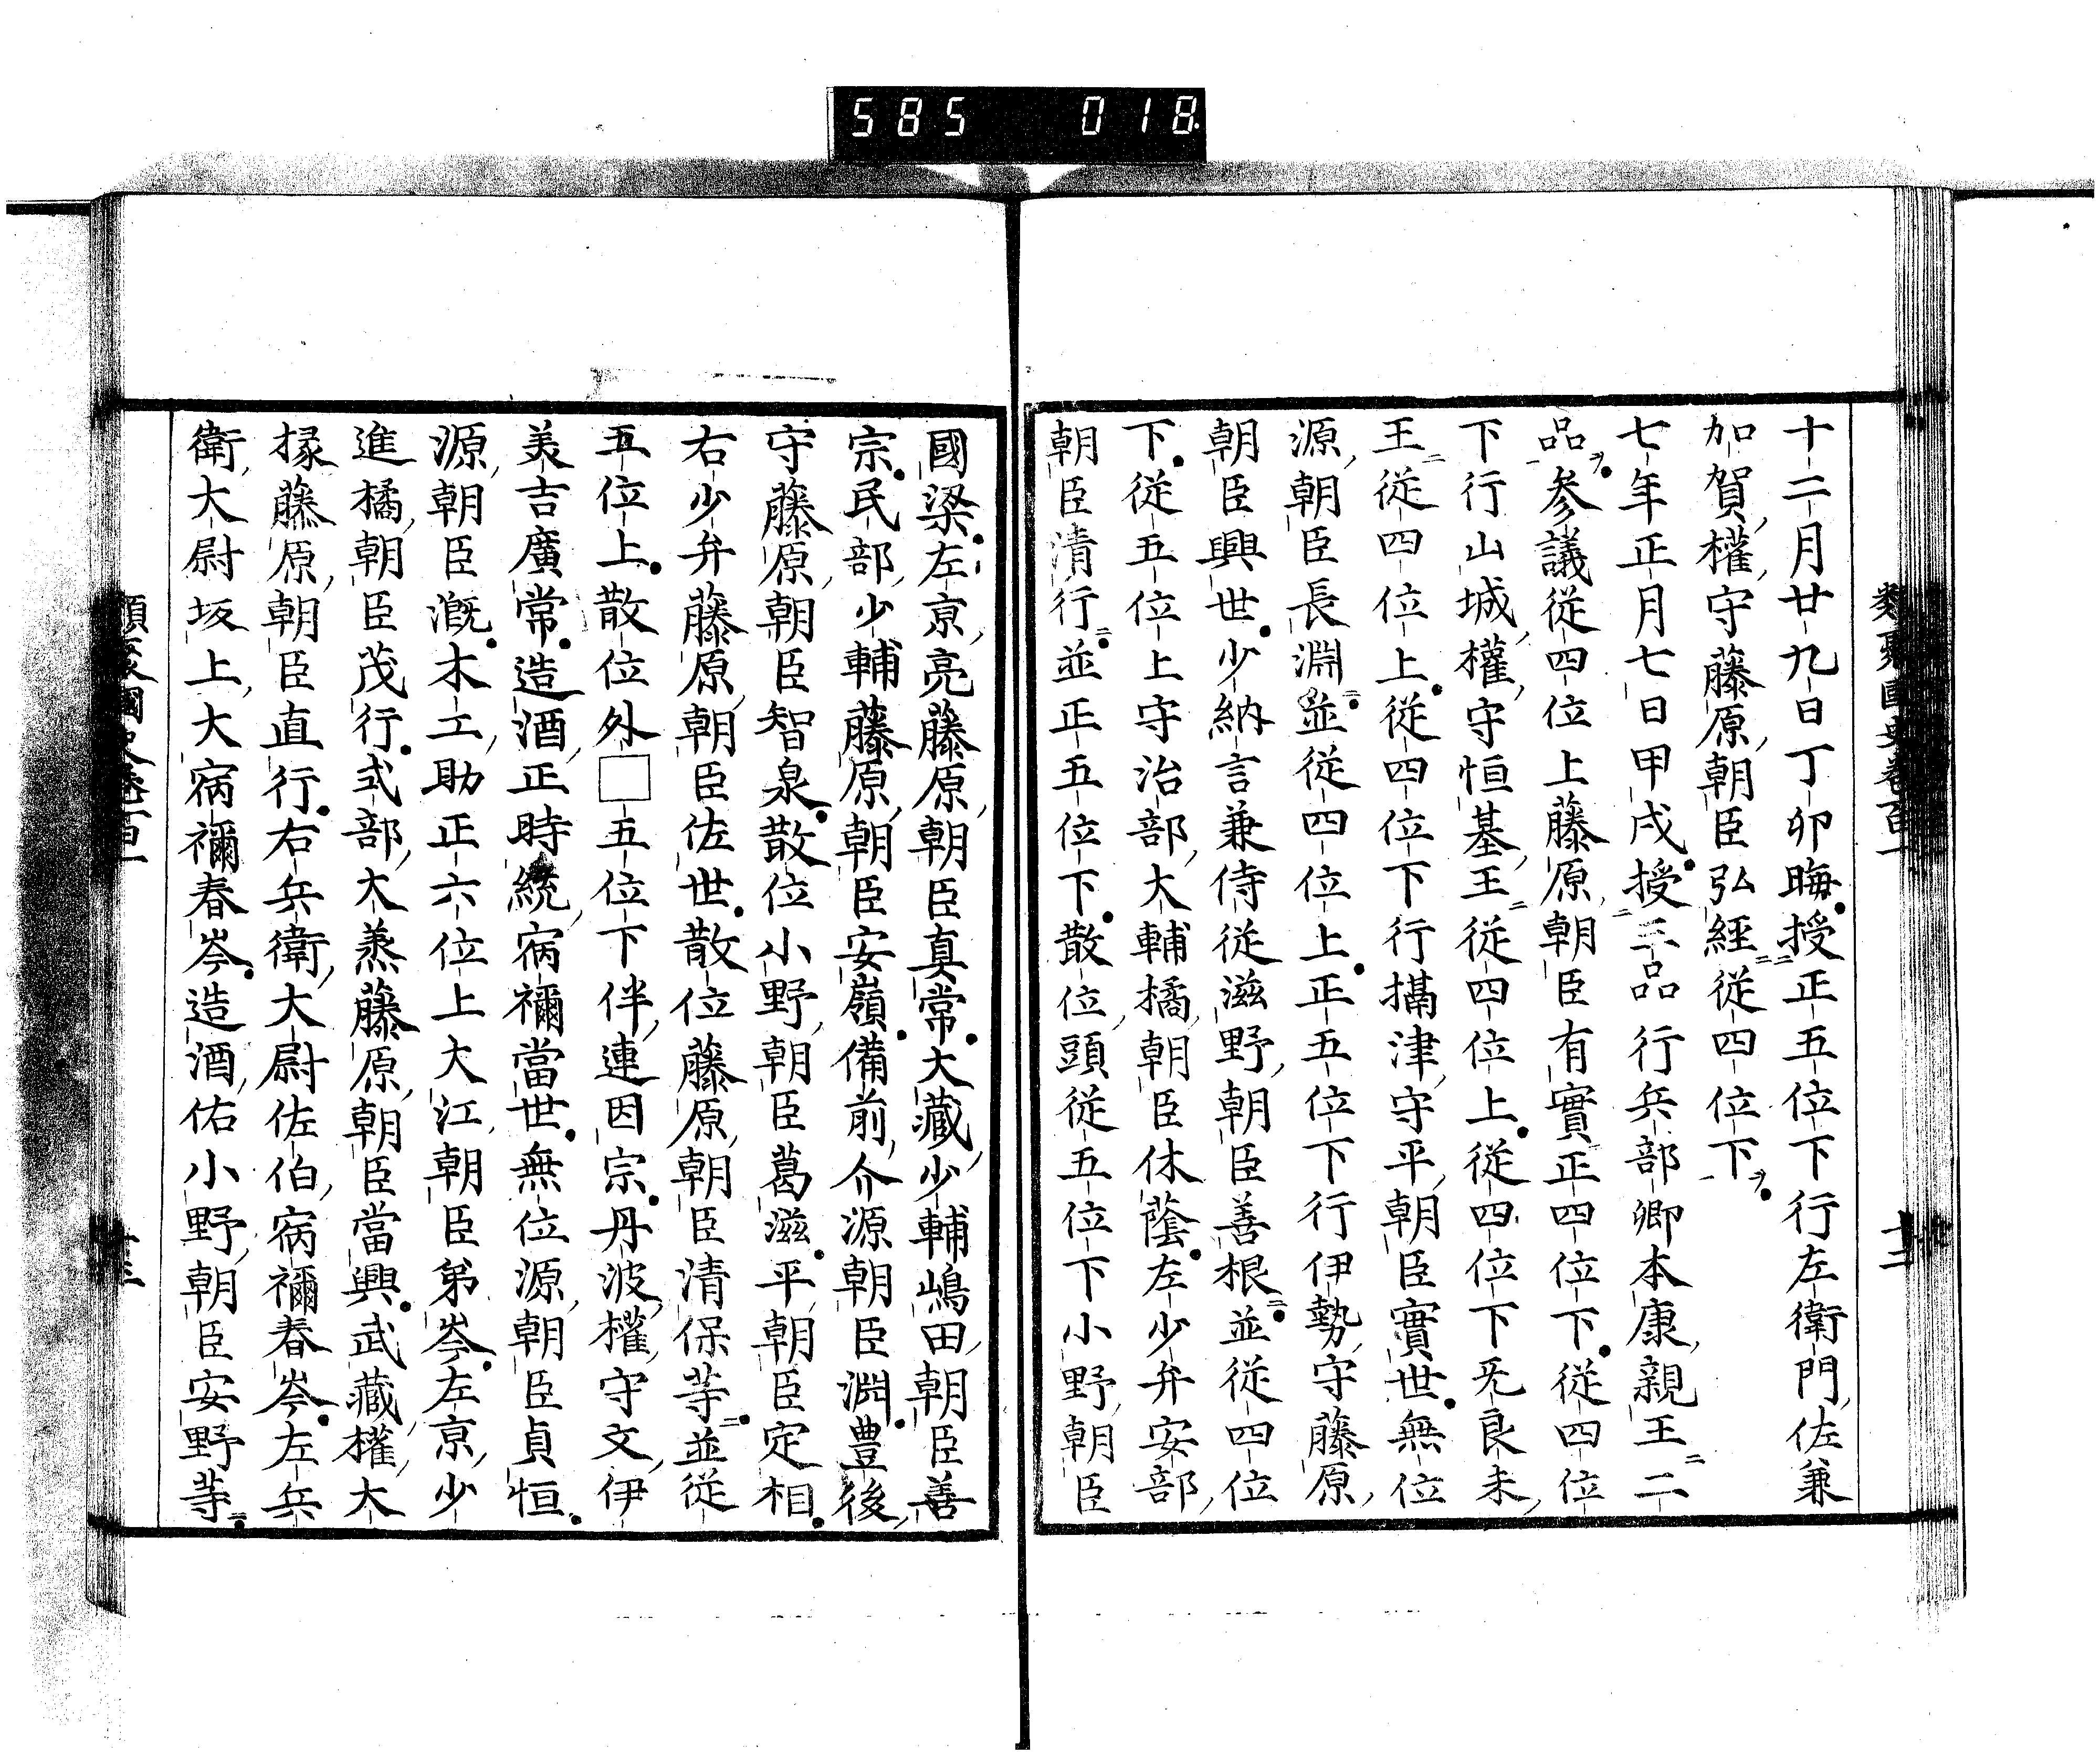 585 018
類聚國史卷百一
十二
十二月廿九日丁卯晦授正五位下行左衛門佐兼
加賀權守藤原朝臣弘經從四位下
七年正月七日甲戌授三品行兵部卿本康親王二
品參議從四位上藤原朝臣有實正四位下從四位
下行山城權守恒基王從四位上從四位下旡良末
王從四位上從四位下行攝津守平朝臣實世無位
源朝臣長淵並從四位上正五位下行伊勢守藤原
朝臣興世少納言兼侍從滋野朝臣善根並從四位
下從五位上守治部大輔橘朝臣休蔭左少弁安部
朝臣清行並正五位下散位頭從五位下小野朝臣
國梁左京亮藤原朝臣真常大藏少輔嶋田朝臣善
宗民部少輔藤原朝臣安嶺備前介源朝臣淵豊後
守藤原朝臣智泉散位小野朝臣葛滋平朝臣定相
右少弁藤原朝臣佐世散位藤原朝臣清保等並從
五位上散位外□五位下伴連因宗丹波權守文伊
美吉廣常造酒正時統宿禰當世無位源朝臣貞恒
源朝臣漑木工助正六位上大江朝臣弟岑左京少
進橘朝臣茂行式部大蒸藤原朝臣當興武藏權大
掾藤原朝臣直行右兵衛大尉佐伯宿禰春岑左兵
衛大尉坂上大宿禰春岑造酒佑小野朝臣安野等
類聚國史卷百一
十三